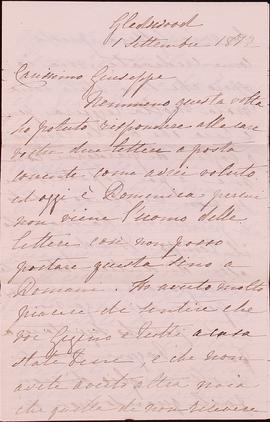 Gledswood
1 Settembre 1872
Carissimo Giuseppe
Nemmeno questa volta
ho potuto rispondere alla
vostra lettera a posta
corrente come avrei voluto
ed oggi è Domenica perciò
non viene l'uomo delle
lettere così non posso
postare questa sino a
Domani. Ho avuto molto
piacere di sentire che
voi Gigino e tutti a casa
state bene, e che non
avete avuto altra noia
che quella di non ricevere